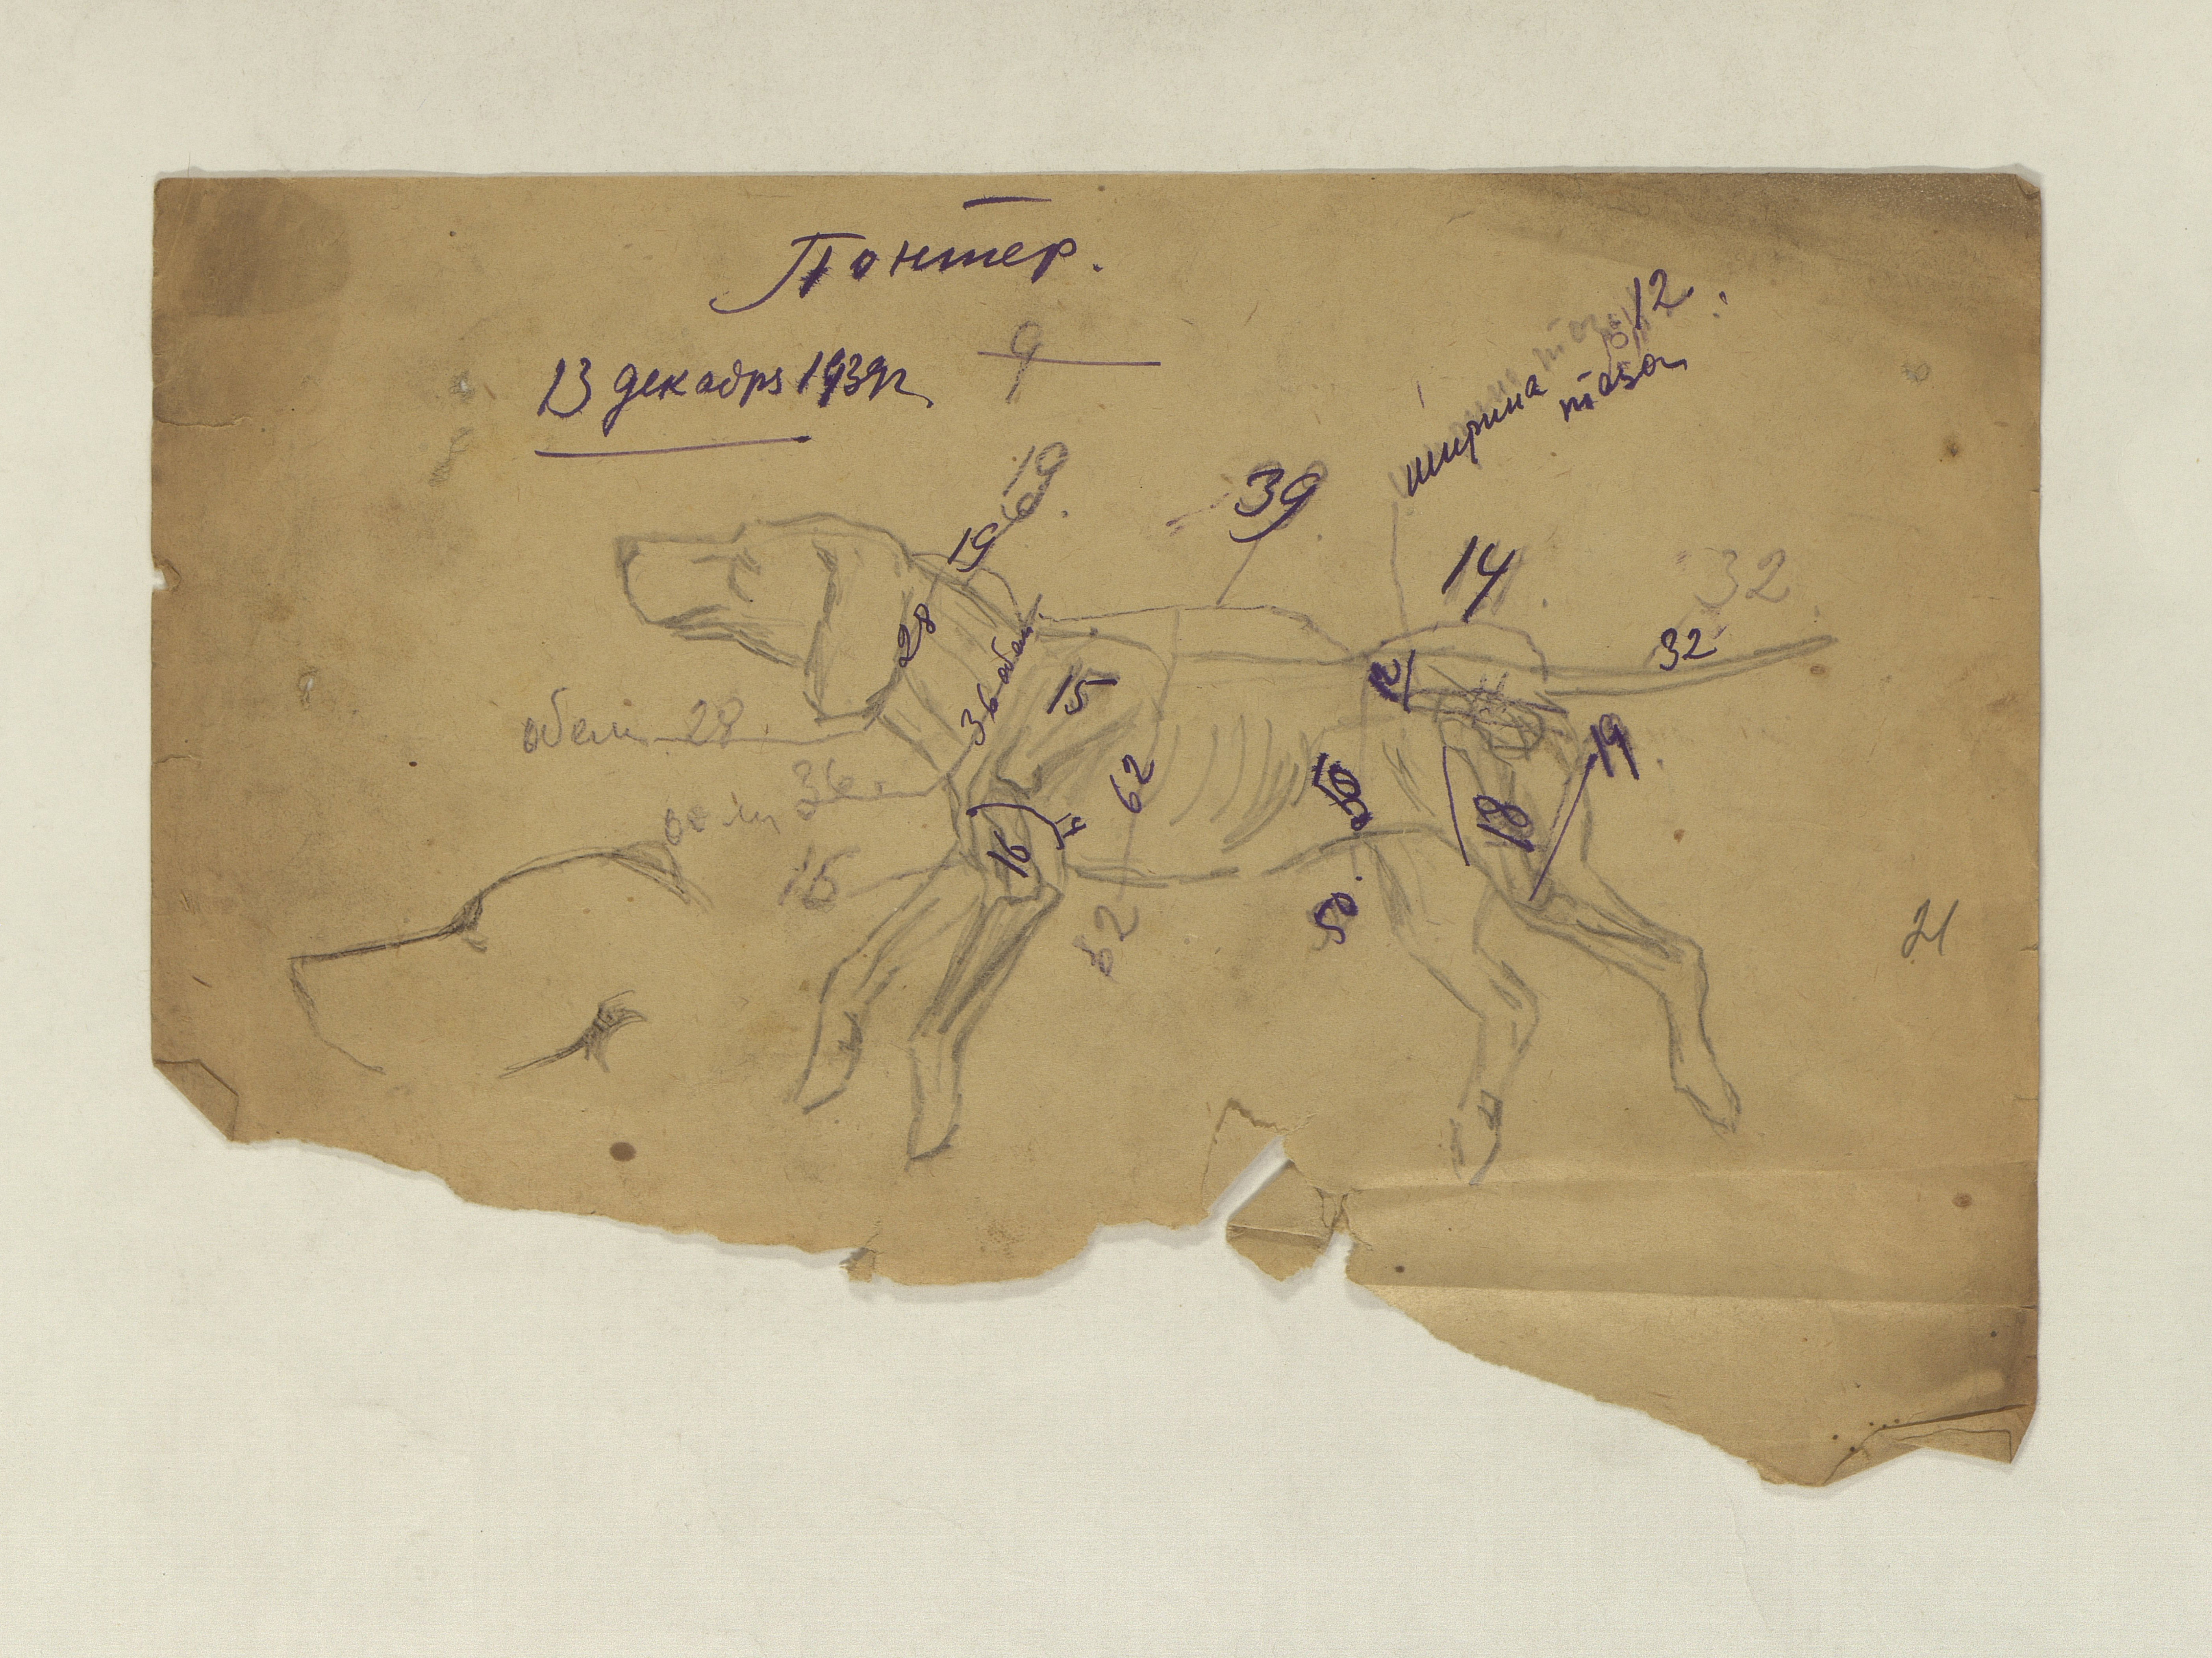 Понтер.
13 декабря 1939г
9
12.
ширина
таза
19
19
39
14
32
32
28
36 обем
15
12
обем 28
обем 36
62
19
18
16
16
50
50
62
21